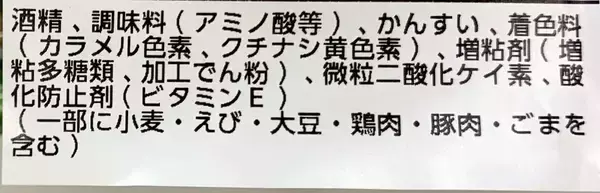 酒精、調味料(アミノ酸等)、かんすい、着色料
(カラメル色素、クチナシ黄色素)、増粘剤(増
粘多糖類、加工でん粉)、微粒二酸化ケイ素、酸
化防止剤(ビタミンE)
(一部に小麦・えび・大豆・鶏肉・豚肉・ごまを
含む)